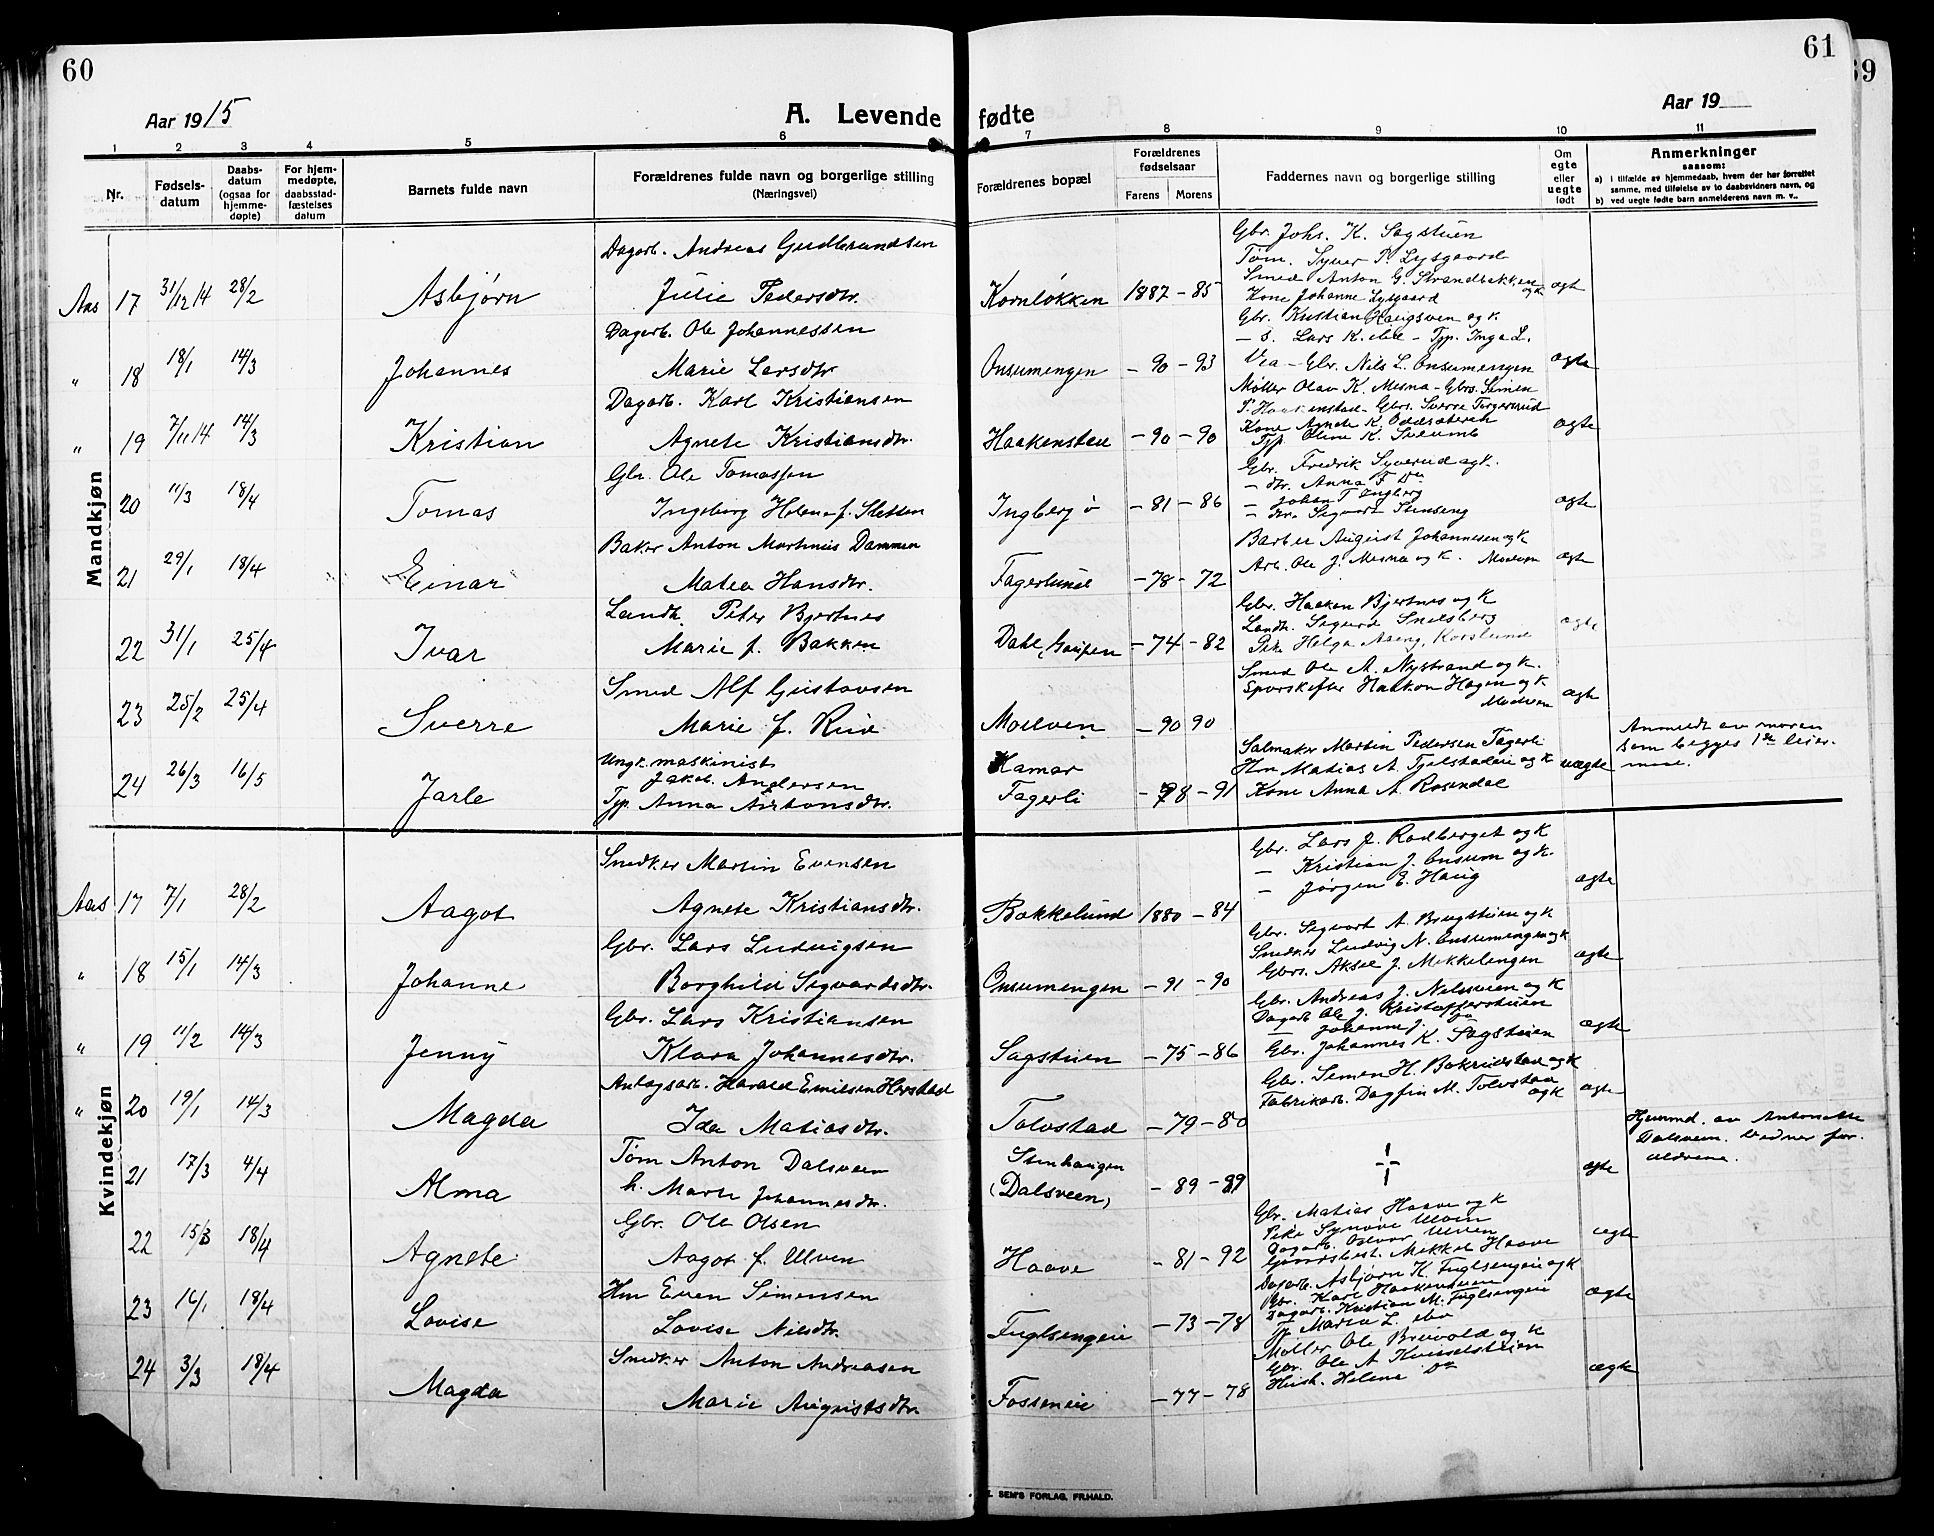 60
61
39
Aar 1915
A. Levende fødte
Aar 19
1 2 3 4 5 6 7 8 9 10 11
Nr.
Fødsels-
datum
Daabs-
datum
(ogsaa for
hjemme-
døpte)
For hjem-
medøpte,
daabsstad-
fæstelses
datum
Barnets fulde navn
Forældrenes fulde navn og borgerlige stilling
(Næringsvei)
Forældrenes bopæl
Forældrenes
fødselsaar
Farens Morens
Faddernes navn og borgerlige stilling
Om
egte
eller
uegte
født
Anmerkninger
saasom:
a) i tilfælde av hjemmedaab, hvem der har forrettet
samme, med tilføielse av to daabsvidners navn, og
b) ved uegte fødte barn anmelderens navn m. v..
Mandkjøn
Aas 17 31/12 14 28/2 Asbjørn
Dagarb. Andreas Gudbrandsen
Julie Pedersdtr.
Kornløkken 1887 - 85
Gbr. Johs. K. Sagstuen
Tøm. Syver P. Lysgaard
Smed Anton G. Strandbakken og k
Kone Johanne Lysgaard
egte
" 18 18/1 14/3 Johannes
Dagarb. Ole Johannessen
Marie Larsdtr.
Onsumengen - 90 - 93
Gbr. Kristian Haugsven og k
- s. Lars K. - Tjp. Inga L.
- Gbr. Nils L. Onsumengen
egte
" 19 7/11 14 14/3 Kristian
Dagarb. Karl Kristiansen
Agnete Kristiansdtr.
Haakenstad - 90 - 90
Møller Olav K. Mesna - Gbrs. Simen
P. Haakenstad - Gbrs. Sverre Torgersrud
Kone Agnete K.
Tjp. Oline K.
egte
20 11/3 18/4 Tomas
Gbr. Ole Tomassen
Ingeborg Helene f. Sletten
Ingberg ø - 81 - 86
Gbr. Fredrik Syverud og k.
- dtr. Anna F. Do
- Johan T Ingberg
- dtr. Sigvart Stenseng
egte
21 29/1 18/4 Einar
Baker Anton Martinius Dammen
Matea Hansdtr.
Fagerlund - 78 - 72
Barber August Johannesen og k
Arb. Ole J. Mesna og k. Moelven
egte
22 31/1 25/4 Ivar
Landh. Peter Bjertnes
Marie f. Bakken
Dahl, Gaupen - 74 - 82
Gbr. Haakon Bjertnes og k
Landh. Sigurd Snelsberg
Pike Helga Aaeng, Korslund
egte
23 25/2 25/4 Sverre
Smed Alf Gustavsen
Marie f. Rud
Moelven - 90 90
Smed Ole A. Nystrand og k.
Sporskifter Haakon Hagen og k
Moelven
egte
24 26/3 16/5 Jarle
Ungk. maskinist
Jakob Andersen
Tjp. Anna Antonsdtr.
Hamar
Fagerli - 78 - 91
Salmaker Martin Pedersen Fagerli
Hm Matias A. Fjelstadeie og k
Kone Anna A. Rosendal
uegte
Anmeldt av moren
som begges 1ste leier-
maal.
Kvindekjøn
Aas 17 7/1 28/2 Aagot
Snedker Martin Evensen
Agnete Kristiansdtr.
Bakkelund 1880 - 84
Gbr. Lars J. Rodberget og k
- Kristian J. Onsum og k.
- Jørgen E. Haug
egte
" 18 15/1 14/3 Johanne
Gbr. Lars Ludvigsen
Borghild Sigvardsdtr.
Onsumengen - 91 - 90
Gbr. Sigvart A. Brugstuen og k
Snedker Ludvig N. Onsumengen og k
Gbrs. Aksel J. Mekkelengen
egte
" 19 11/2 14/3 Jenny
Gbr. Lars Kristiansen
Klara Johannesdtr.
Sagstuen - 75 - 86
Gbr. Andreas J. Nilsveen og k
Dagarb. Ole J. Kristofferstuen
- Johanne J. Do
Gbr. Johannes K. Sagstuen
egte
" 20 19/1 14/3 Magda
Anlægsarb. Harald Emilsen Herstad
Ida Matiasdtr.
Tolvstad - 79 - 80
Gbr. Simen H. Bakrudstad og k
Fabrikarb. Dagfin M. Tolvstad
og k
egte
21 17/3 4/4 Alma
Tøm Anton Dalsveen
h. Marte Johannesdtr.
Stenhaugen
(Dalsveen) - 89 - 89
egte
Hjemmd. av Antonette
Dalsveen. Vidner for-
ældrene.
22 15/3 18/4 Agnete
Gbr. Ole Olsen
Aagot f. Ulven
Haave - 81 - 92
Gbr. Matias Haave og k
Pike Synøve Ulven
Dagarb. Oddvar Ulven
Gaardsbest. Mikkel Haave
egte
23 16/1 18/4 Lovise
Hm Even Simensen
Lovise Nilsdtr.
Fuglsengeie - 73 - 78
Dagarb. Asbjørn K. Fuglsengeie og k
Gbr. Karl Haakenstuen
Dagarb. Kristian M. Fuglsengeie
Tjp Maria L.
egte
24 3/3 18/4 Magda
Snedker Anton Andreasen
Marie Augustsdtr.
Fosseneie - 77 - 78
Møller Ole Breivold og k
Gbr. Ole A Kvisselstuen
Hush. Helene Do
egte
SEM'S FORLAG, FR.HALD.